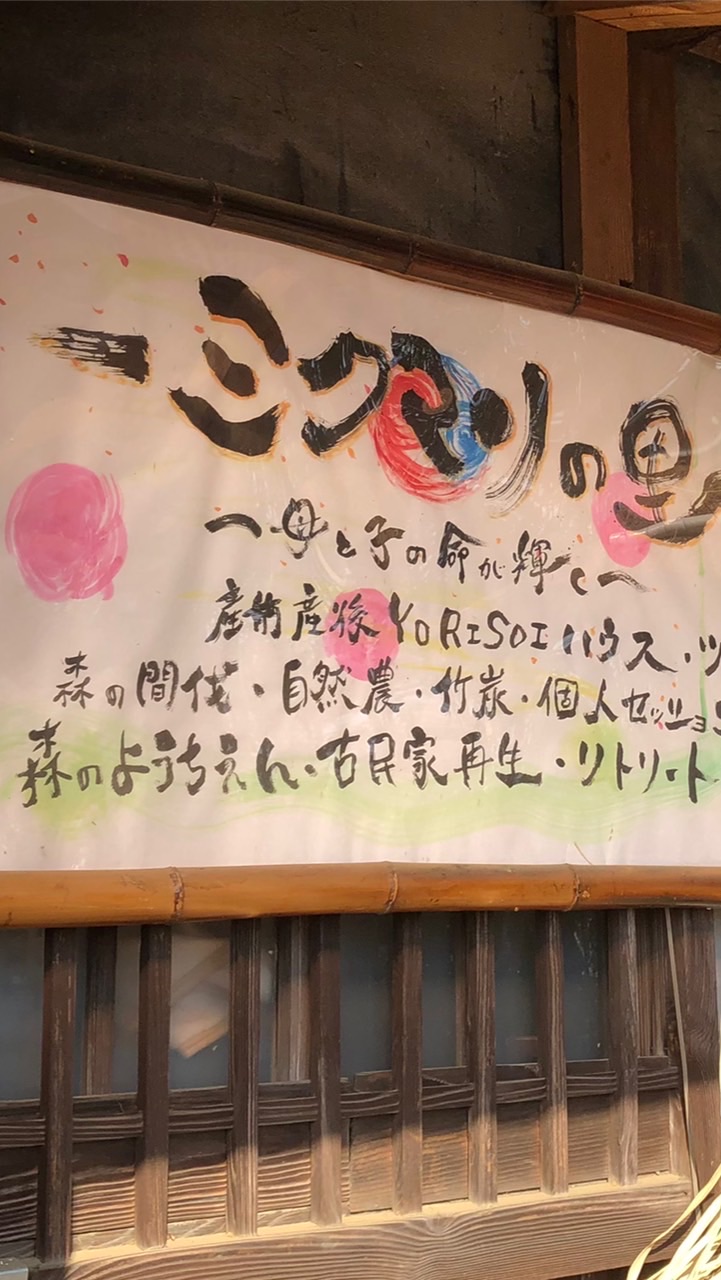 ーミクマリの里
〜母と子の命が輝く〜
産前産後YORISOIハウス・ツ
森の間伐・自然農・竹炭・個人セッション
森のようちえん・古民家再生・リトリート